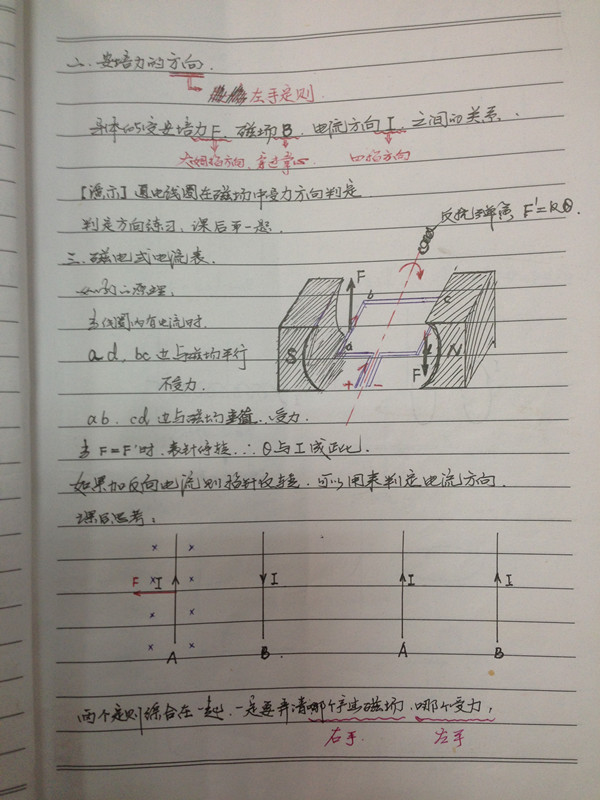 二、安培力的方向.
左手定则
导体的安培力F、磁场B、电流方向I 之间的关系.
大姆指方向、穿过掌心 四指方向
[演示]通电线圈在磁场中受力方向判定
判定方向练习、课后第一题.
反抗弹簧 F'=Kθ.
三、磁电式电流表.
原理.
当线圈内有电流时.
ad、bc边与磁场平行
不受力.
F b c
S a N
F
+ -
ab、cd边与磁场垂直、受力.
当F=F'时、表针停转、∴θ与I成正比.
如果加反向电流则指针反转、可以用来判定电流方向.
课后思考:
× ×
F × I × I I I
× ×
× ×
A B A B
两个定则综合在一起、一定要弄清哪个产生磁场、哪个受力;
右手 左手